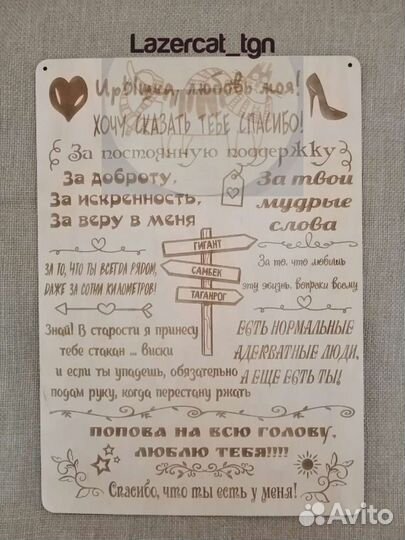 Lazercat_tgn
Ирышка, любовь моя!
ХОЧУ СКАЗАТЬ ТЕБЕ СПАСИБО!
За постоянную поддержку
За доброту,
За искренность,
За веру в меня
За твои
мудрые
слова
ГИГАНТ
САМБЕК
ТАГАНРОГ
ЗА ТО, ЧТО ТЫ ВСЕГДА РЯДОМ,
ДАЖЕ ЗА СОТНИ КИЛОМЕТРОВ!
За то, что любишь
эту жизнь, вопреки всему
Знай! В старости я принесу
тебе стакан ... виски
и если ты упадешь, обязательно
подам руку, когда перестану ржать
ЕСТЬ НОРМАЛЬНЫЕ
АДЕКВАТНЫЕ ЛЮДИ,
А ЕЩЕ ЕСТЬ ТЫ!
ПОПОВА НА ВСЮ ГОЛОВУ,
ЛЮБЛЮ ТЕБЯ!!!!
Спасибо, что ты есть у меня!
Avito